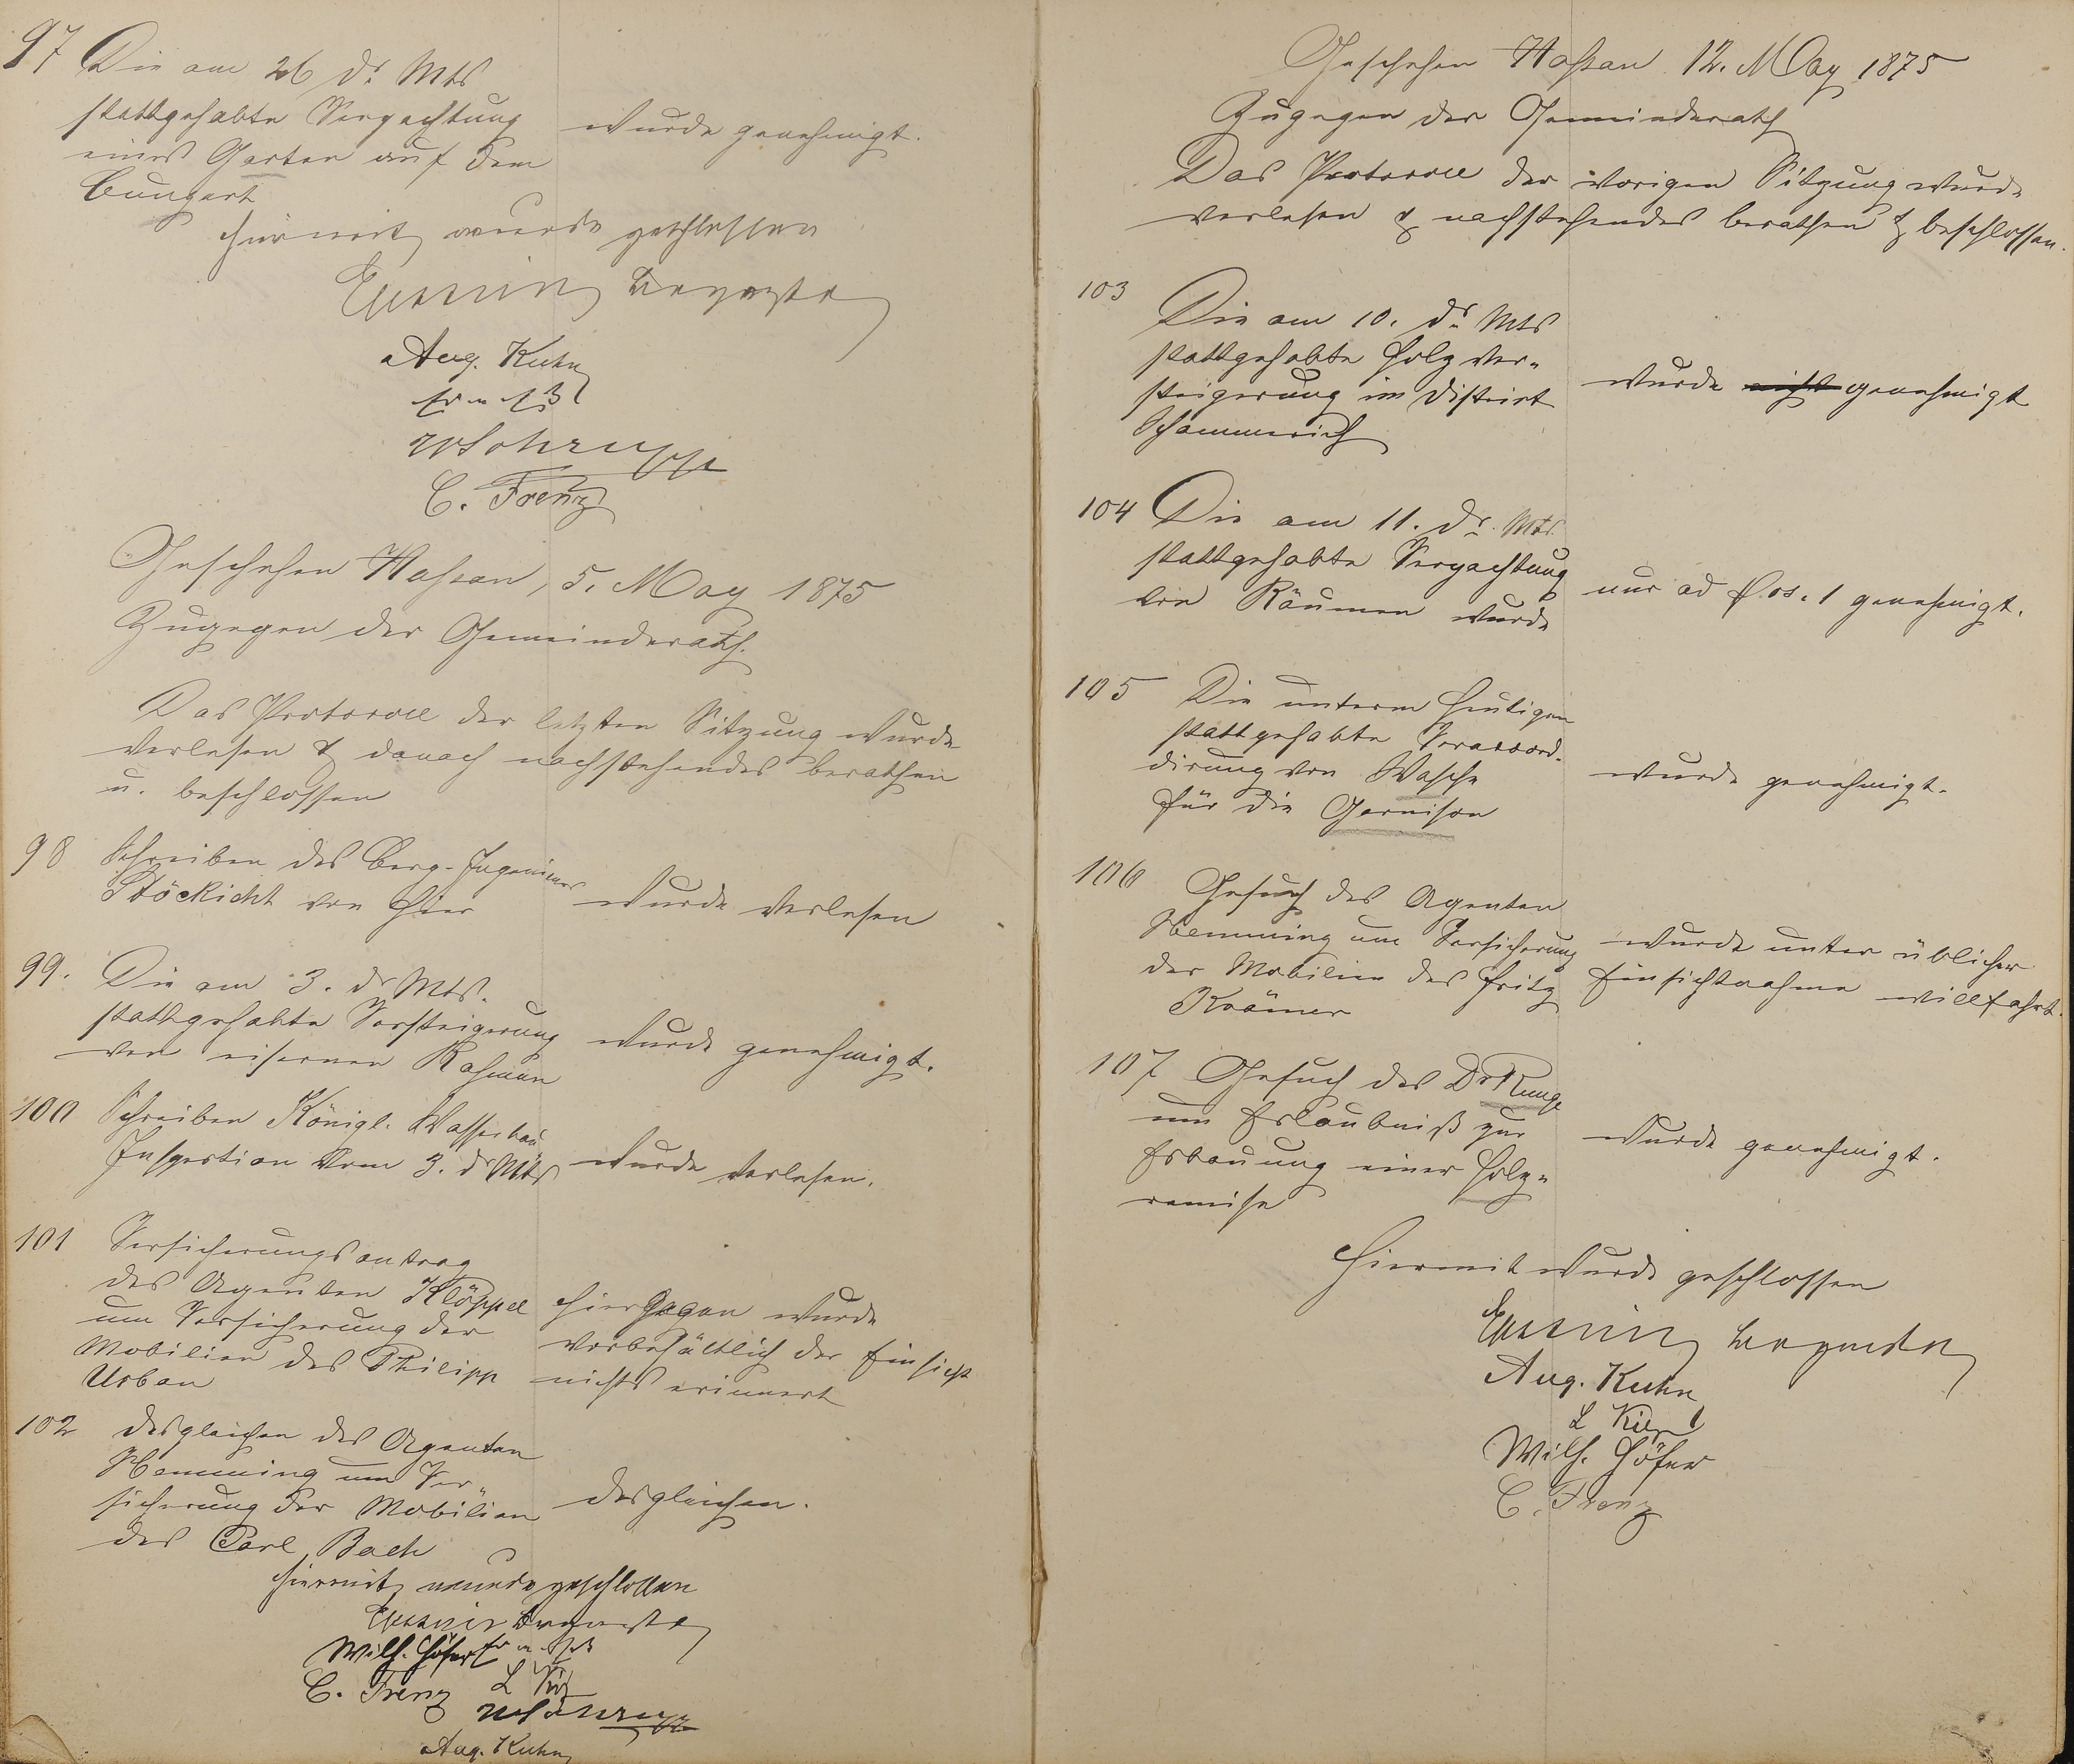 97 Die am 26 ds. Mts
stattgehabte Verpachtung
eines Garten auf dem
Bungert
wurde genehmigt.
hiermit wurde geschlossen
Aug. Kuhn
C. Frenz
Geschehen Nassau, 5. May 1875
Zugegen der Gemeinderath.
Das Protocoll der letzten Sitzung wurde
verlesen & danach nachstehendes berathen
u. beschlossen
98 Schreiben des Berg-Ingenieur
Stöckicht von hier
wurde verlesen
99. Die am 3. ds Mts.
stattgehabte Versteigerung
von eisernen Rahmen
wurde genehmigt.
100 Schreiben Königl. Wasserbau
Inspection vom 3. ds Mts
wurde verlesen.
101 Versicherungsantrag
des Agenten Klöppel
um Versicherung der
Mobilien des Philipp
Urban
hiergegen wurde
vorbehältlich der Einsicht
nichts erinnert
102 desgleichen des Agenten
Hemming um Ver-
sicherung der Mobilien
des Carl Bach
desgleichen.
hiermit wurde geschlossen
Wilh. Höfer
C. Frenz
Aug. Kuhn
Geschehen Nassau 12. May 1875
Zugegen der Gemeinderath
Das Protocoll der vorigen Sitzung wurde
verlesen & nachstehendes berathen & beschlossen.
103
Die am 10. ds. Mts
stattgehabte Holz Ver-
steigerung im District
wurde nicht genehmigt
104 Die am 11. ds. Mts.
stattgehabte Verpachtung
von Räumen wurde
nur ad Pos. 1 genehmigt.
105 Die unterm heutigen
stattgehabte Veraccord-
dirung von Wasche
für die Garnison
wurde genehmigt.
106 Gesuch des Agenten
Hemming um Versicherung
der Mobilien des Fritz
Krämer
wurde unter üblicher
Einsichtnahme willfahrt.
107 Gesuch des Dr Runge
um Erlaubniß zur
Erbauung einer Holz-
remise
wurde genehmigt.
Hiermit wurde geschlossen
Aug. Kuhn
Wilh. Höfer
C. Frenz